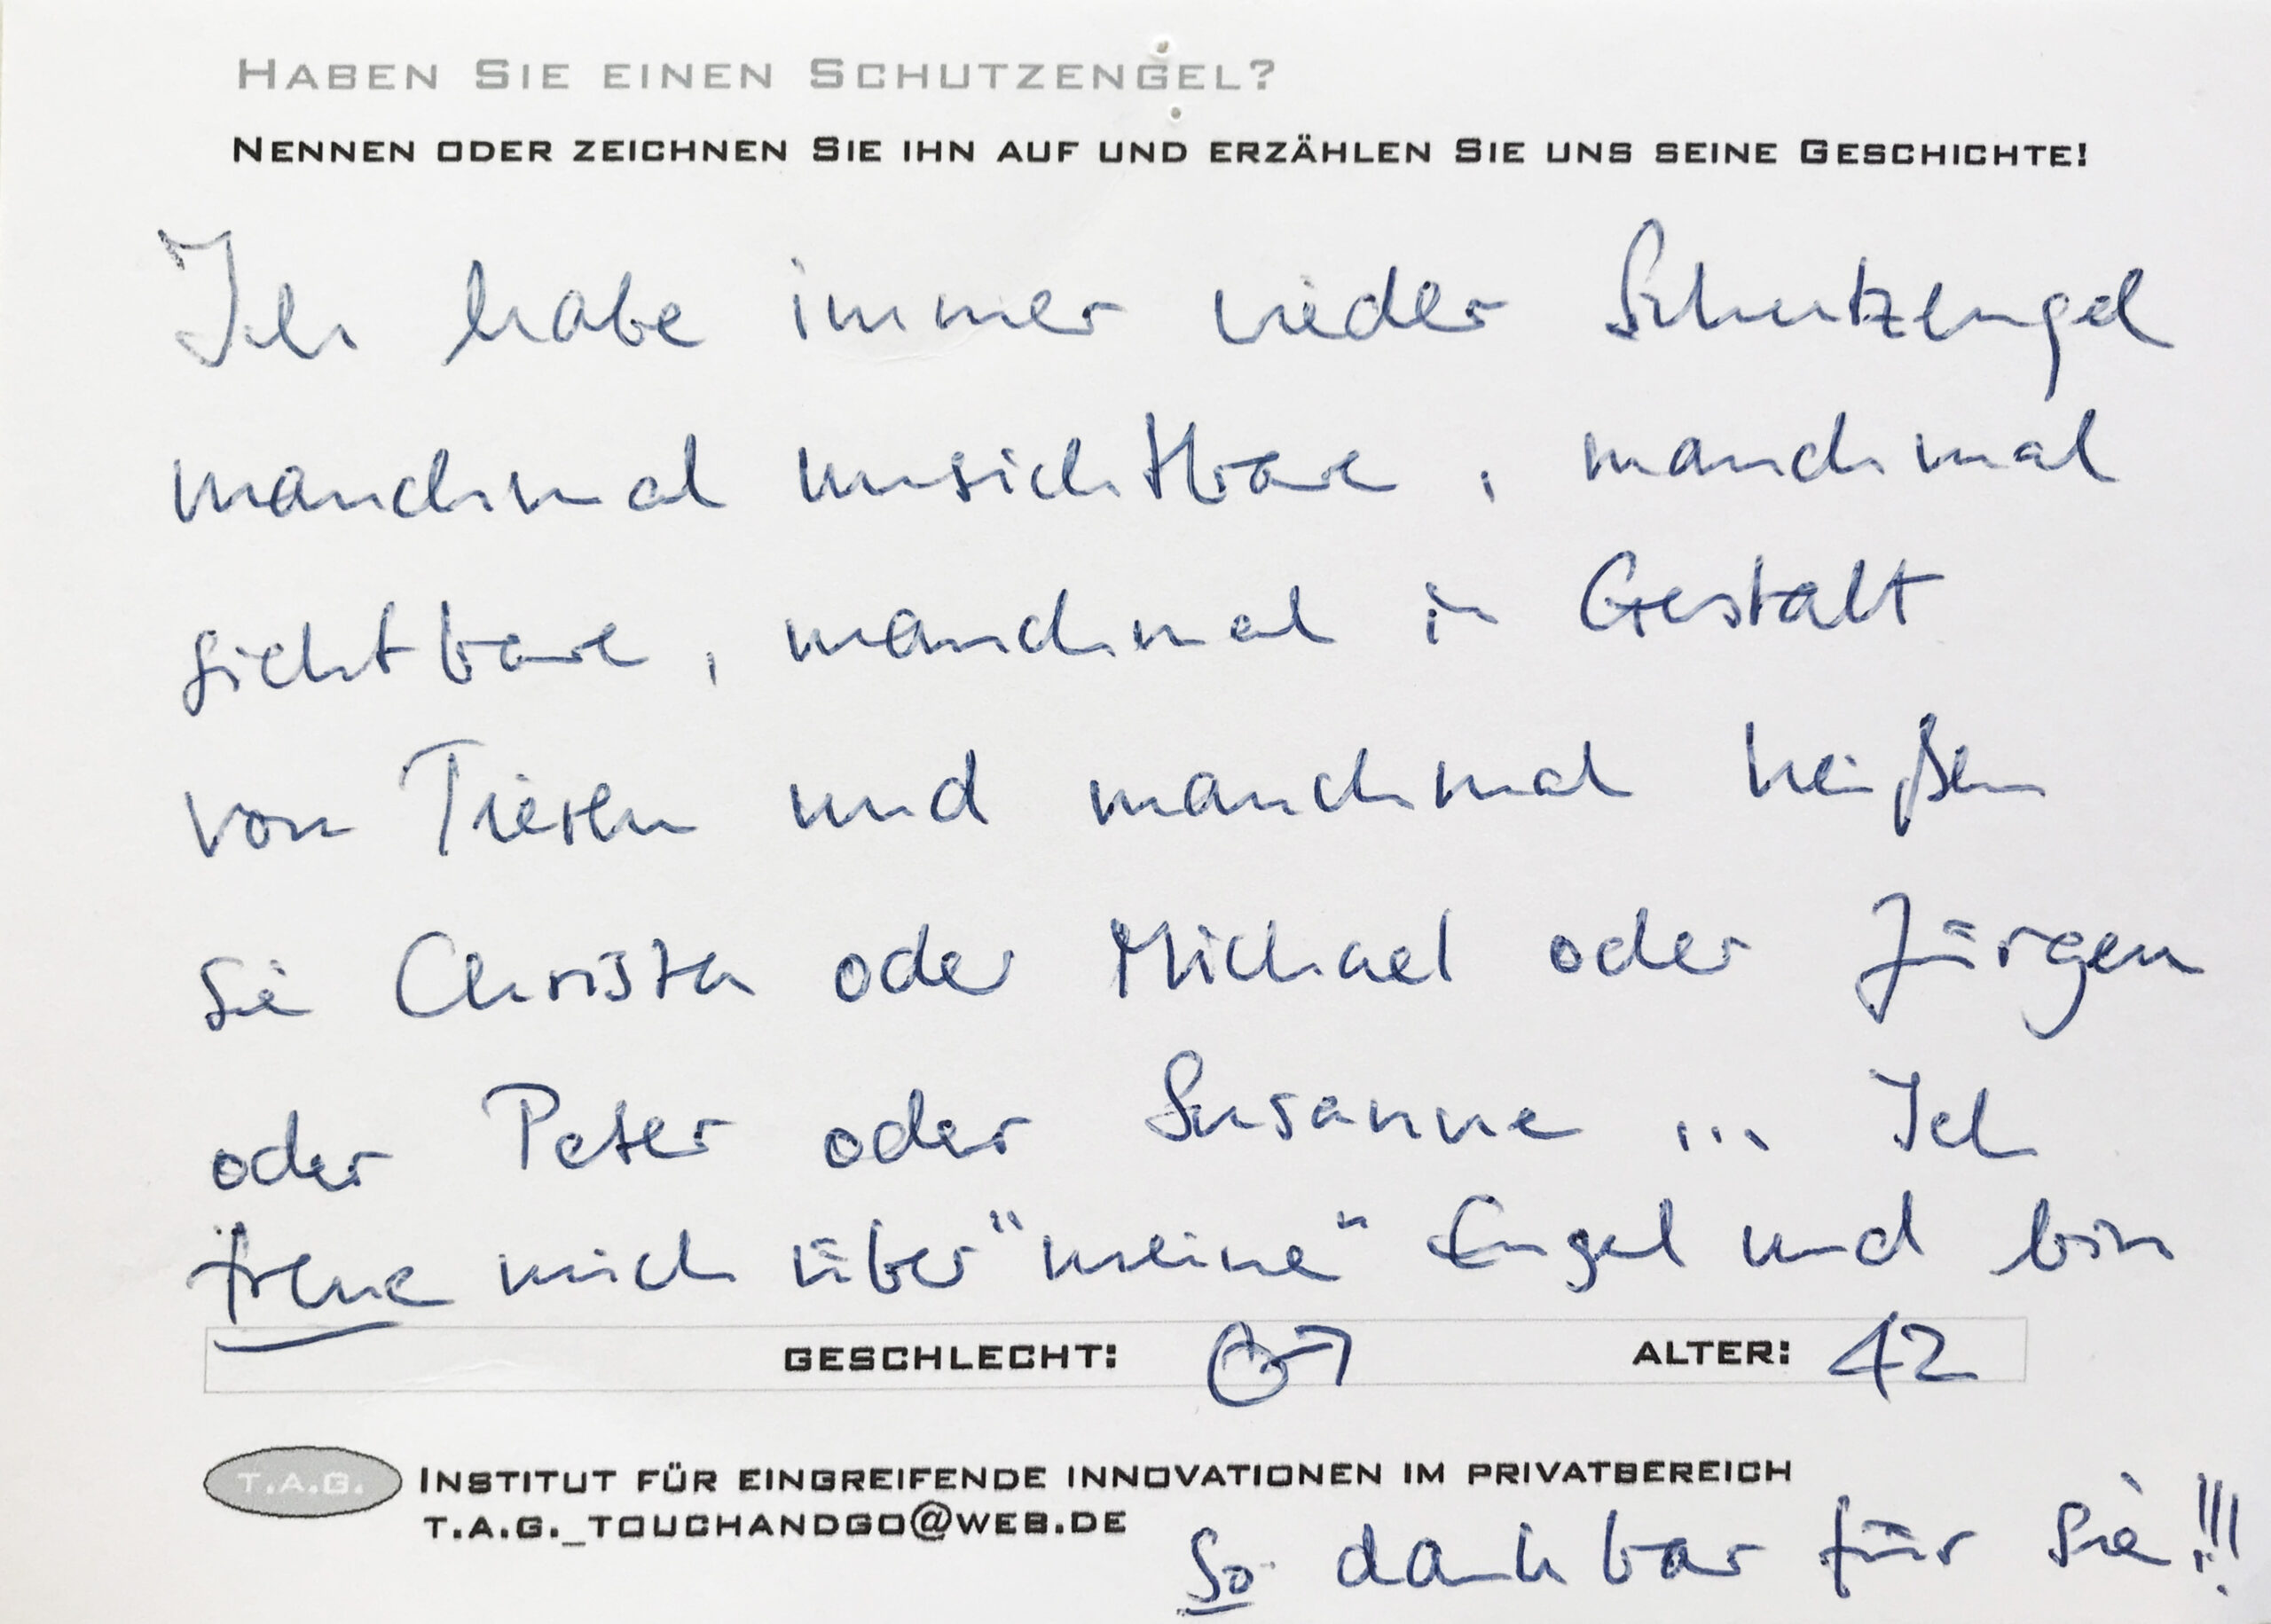 HABEN SIE EINEN SCHUTZENGEL?
NENNEN ODER ZEICHNEN SIE IHN AUF UND ERZÄHLEN SIE UNS SEINE GESCHICHTE!
Ich habe immer wieder Schutzengel
manchmal unsichtbare, manchmal
sichtbare, manchmal in Gestalt
von Tieren und manchmal heißen
sie Christa oder Michael oder Jürgen
oder Peter oder Susanne ... Ich
freue mich über "meine" Engel und bin
GESCHLECHT: ♂ ALTER: 42
T.A.G. INSTITUT FÜR EINGREIFENDE INNOVATIONEN IM PRIVATBEREICH
T.A.G._TOUCHANDGO@WEB.DE
so dankbar für sie!!!